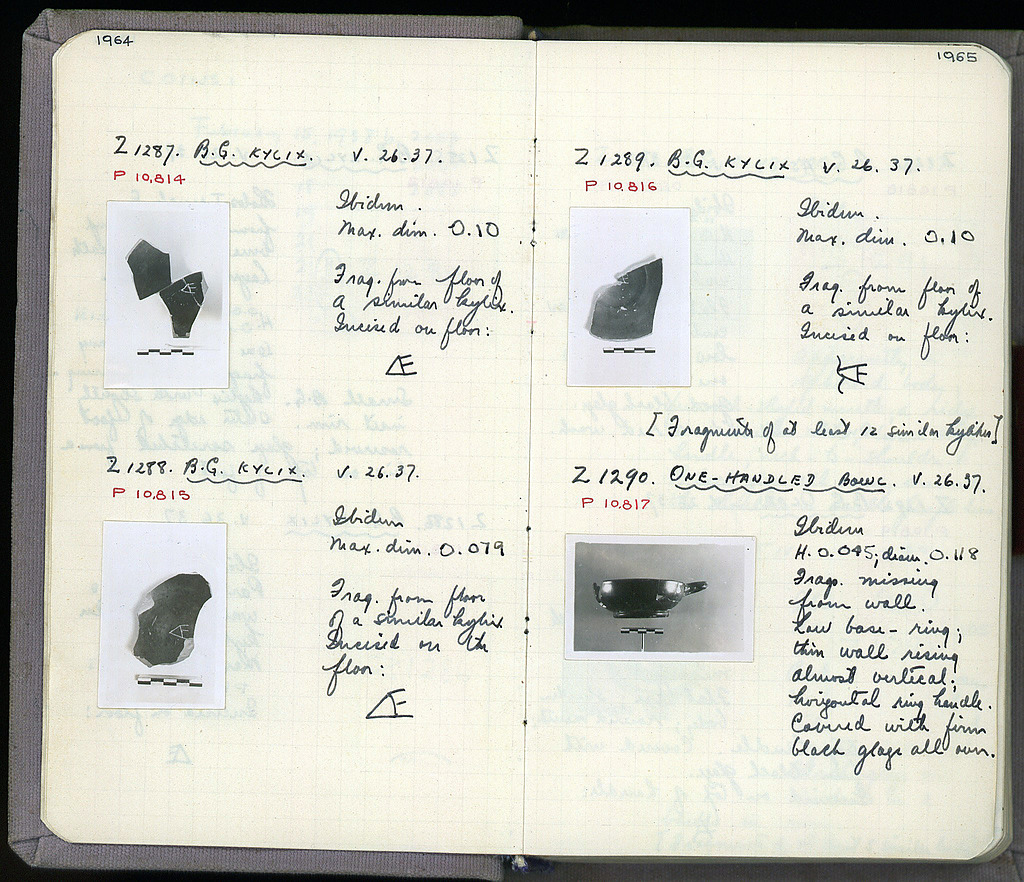 1964
Z 1287. B.G. KYLIX. V. 26.37.
P 10,814
Ibidem.
Max. dim. 0.10
Frag. from floor of
a similar kylix.
Incised on floor:
Z 1288. B.G. KYLIX. V. 26.37.
P 10,815
Ibidem
Max. dim. 0.079
Frag. from floor
of a similar kylix.
Incised on the
floor:
1965
Z 1289. B.G. KYLIX V. 26.37.
P 10,816
Ibidem.
Max. dim. 0.10
Frag. from floor of
a similar kylix.
Incised on floor:
[Fragments of at least 12 similar kylikes]
Z 1290. ONE-HANDLED BOWL. V. 26.37.
P 10,817
Ibidem
H. 0.045; diam. 0.118
Frags. missing
from wall.
Low base-ring;
thin wall rising
almost vertical;
horizontal ring handle.
Covered with firm
black glaze all over.